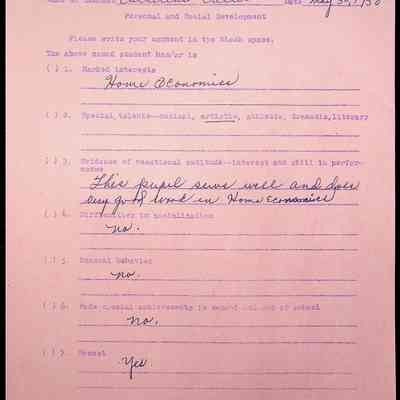 Date May 3
Personal and Social Development
Please write your comment in the blank space.
The above named student has/or is
( ) 1. Marked interests
Home Economics
( ) 2. Special talents--musical, artistic, athletic, dramatic, literary
( ) 3. Evidence of vocational aptitude--interest and skill in perfor-
mance
This pupil sews well and does
very good work in Home Economics
( ) 4. Difficulties in socialization
no.
( ) 5. Unusual Behavior
no.
( ) 6. Made special achievements in school
no.
( ) 7. Honest
Yes